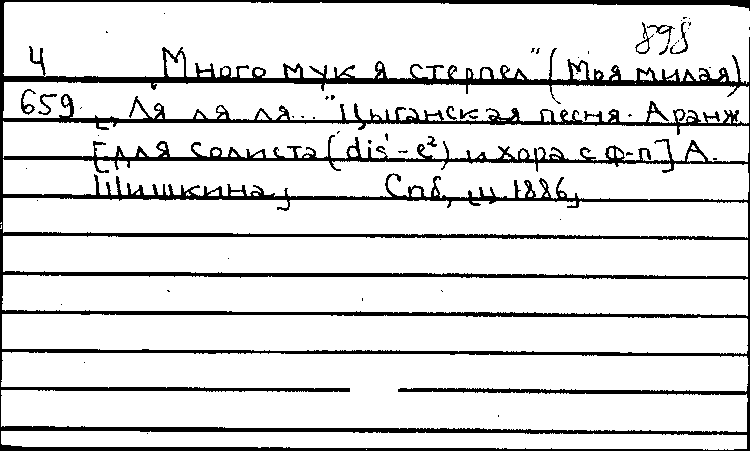 898
4 "Много мук я стерпел" (Моя милая)
659. „Ля ля ля..." Цыганская песня. Аранж
[для солиста (dis¹ - e²) и хора с ф-п] А.
Шишкина,
Спб, ц. 1886,